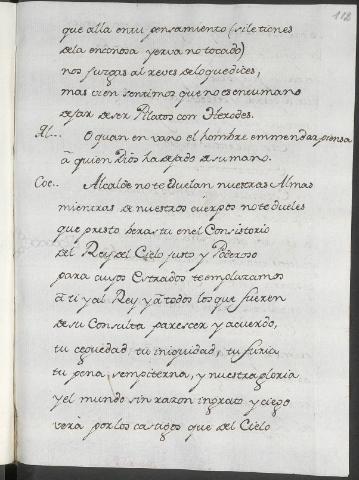 112
que alla en tu pensamiento (si le tienes
de la enconosa yerva no tocado)
nos juzgas al reves de lo que dices,
mas vien sentimos que no es en umano
dejar de ser Pilatos con Herodes.
Al... O quan en vano el hombre emmendar piensa
à quien Dios ha dejado de su mano.
Coe.. Alcalde no te duelan nuestras Almas
mientras de nuestros cuerpos no te dueles
que presto veras tu en el Consistorio
del Rey del Cielo justo y Poderoso
para cuyos Estrados te emplazamos
à ti y al Rey y à todos los que fueren
de su Consulta parescer y acuerdo,
tu ceguedad, tu iniquidad, tu furia
tu pena, sempiterna, y nuestra gloria
y el mundo sin razon ingrato y ciego
verà por los castigos que del Cielo